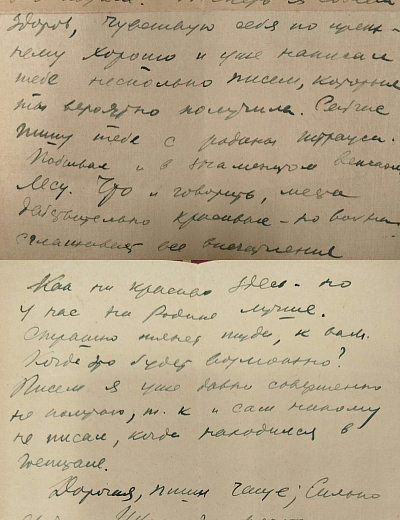 здоров, чувствую себя по преж-
нему хорошо и уже написал
тебе несколько писем, которые
ты вероятно получила. Сейчас
пишу тебе с родины Штрауса.
Побывал и в знаменитом Венском
лесу. Что и говорить, места
действительно красивые – но война
сглаживает все впечатления
Как ни красиво здесь – но
у нас на Родине лучше.
Страшно тянет туда, к вам.
Когда это будет возможно?
Писем я уже давно совершенно
не получаю, т. к. и сам никому
не писал, когда находился в
Дорогая, пиши чаще; Сильно